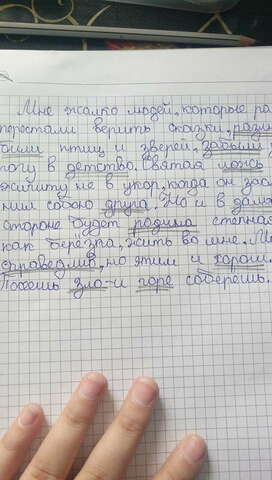 Мне жалко людей, которые ра
перестали верить сказки, разлю
били птиц и зверей, забыли д
рогу в детство. Святая ложь
жулику не в укор, когда он
собою друга. Но и в даль
стороне будет родина степная
как берёзка, жить во мне. М
справедлив, но этим и хорош.
Посеешь зло – и горе соберёшь.